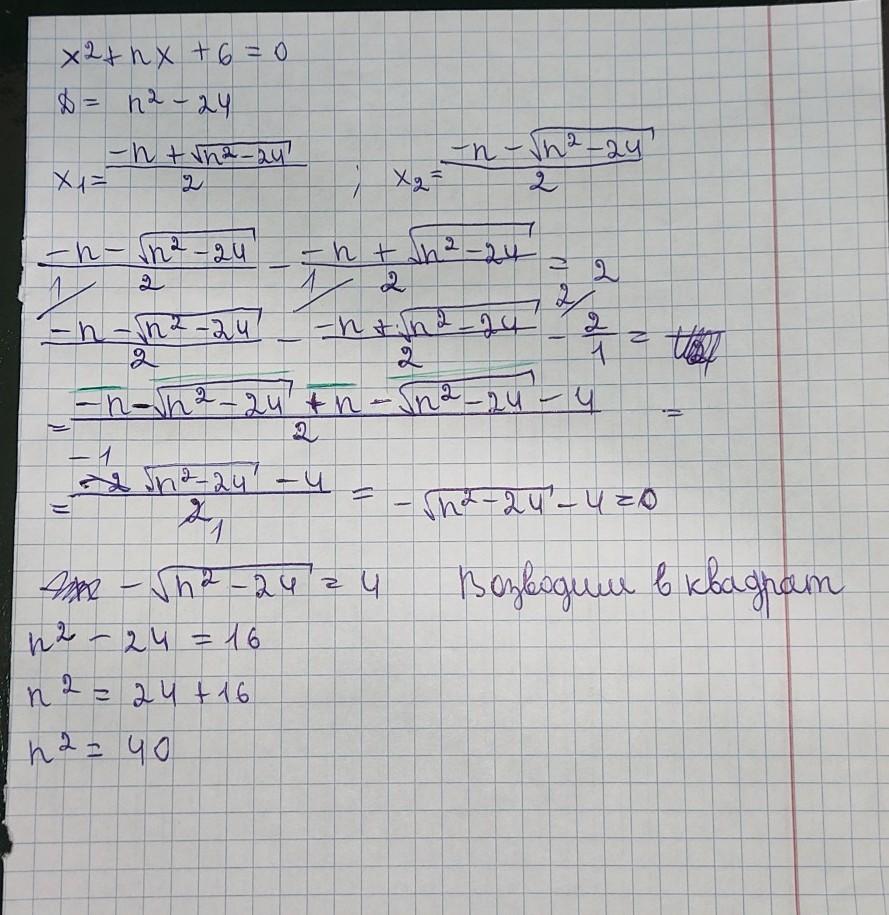 x² + nx + 6 = 0
D = n² - 24
x₁ = (-n + √(n² - 24))/2 ; x₂ = (-n - √(n² - 24))/2
(-n - √(n² - 24))/2 - (-n + √(n² - 24))/2 = 2
(-n - √(n² - 24))/2 - (-n + √(n² - 24))/2 - 2/1 =
= (-n - √(n² - 24) + n - √(n² - 24) - 4)/2 =
= (-2√(n² - 24) - 4)/2 = -√(n² - 24) - 4 = 0
-√(n² - 24) = 4 Возводим в квадрат
n² - 24 = 16
n² = 24 + 16
n² = 40